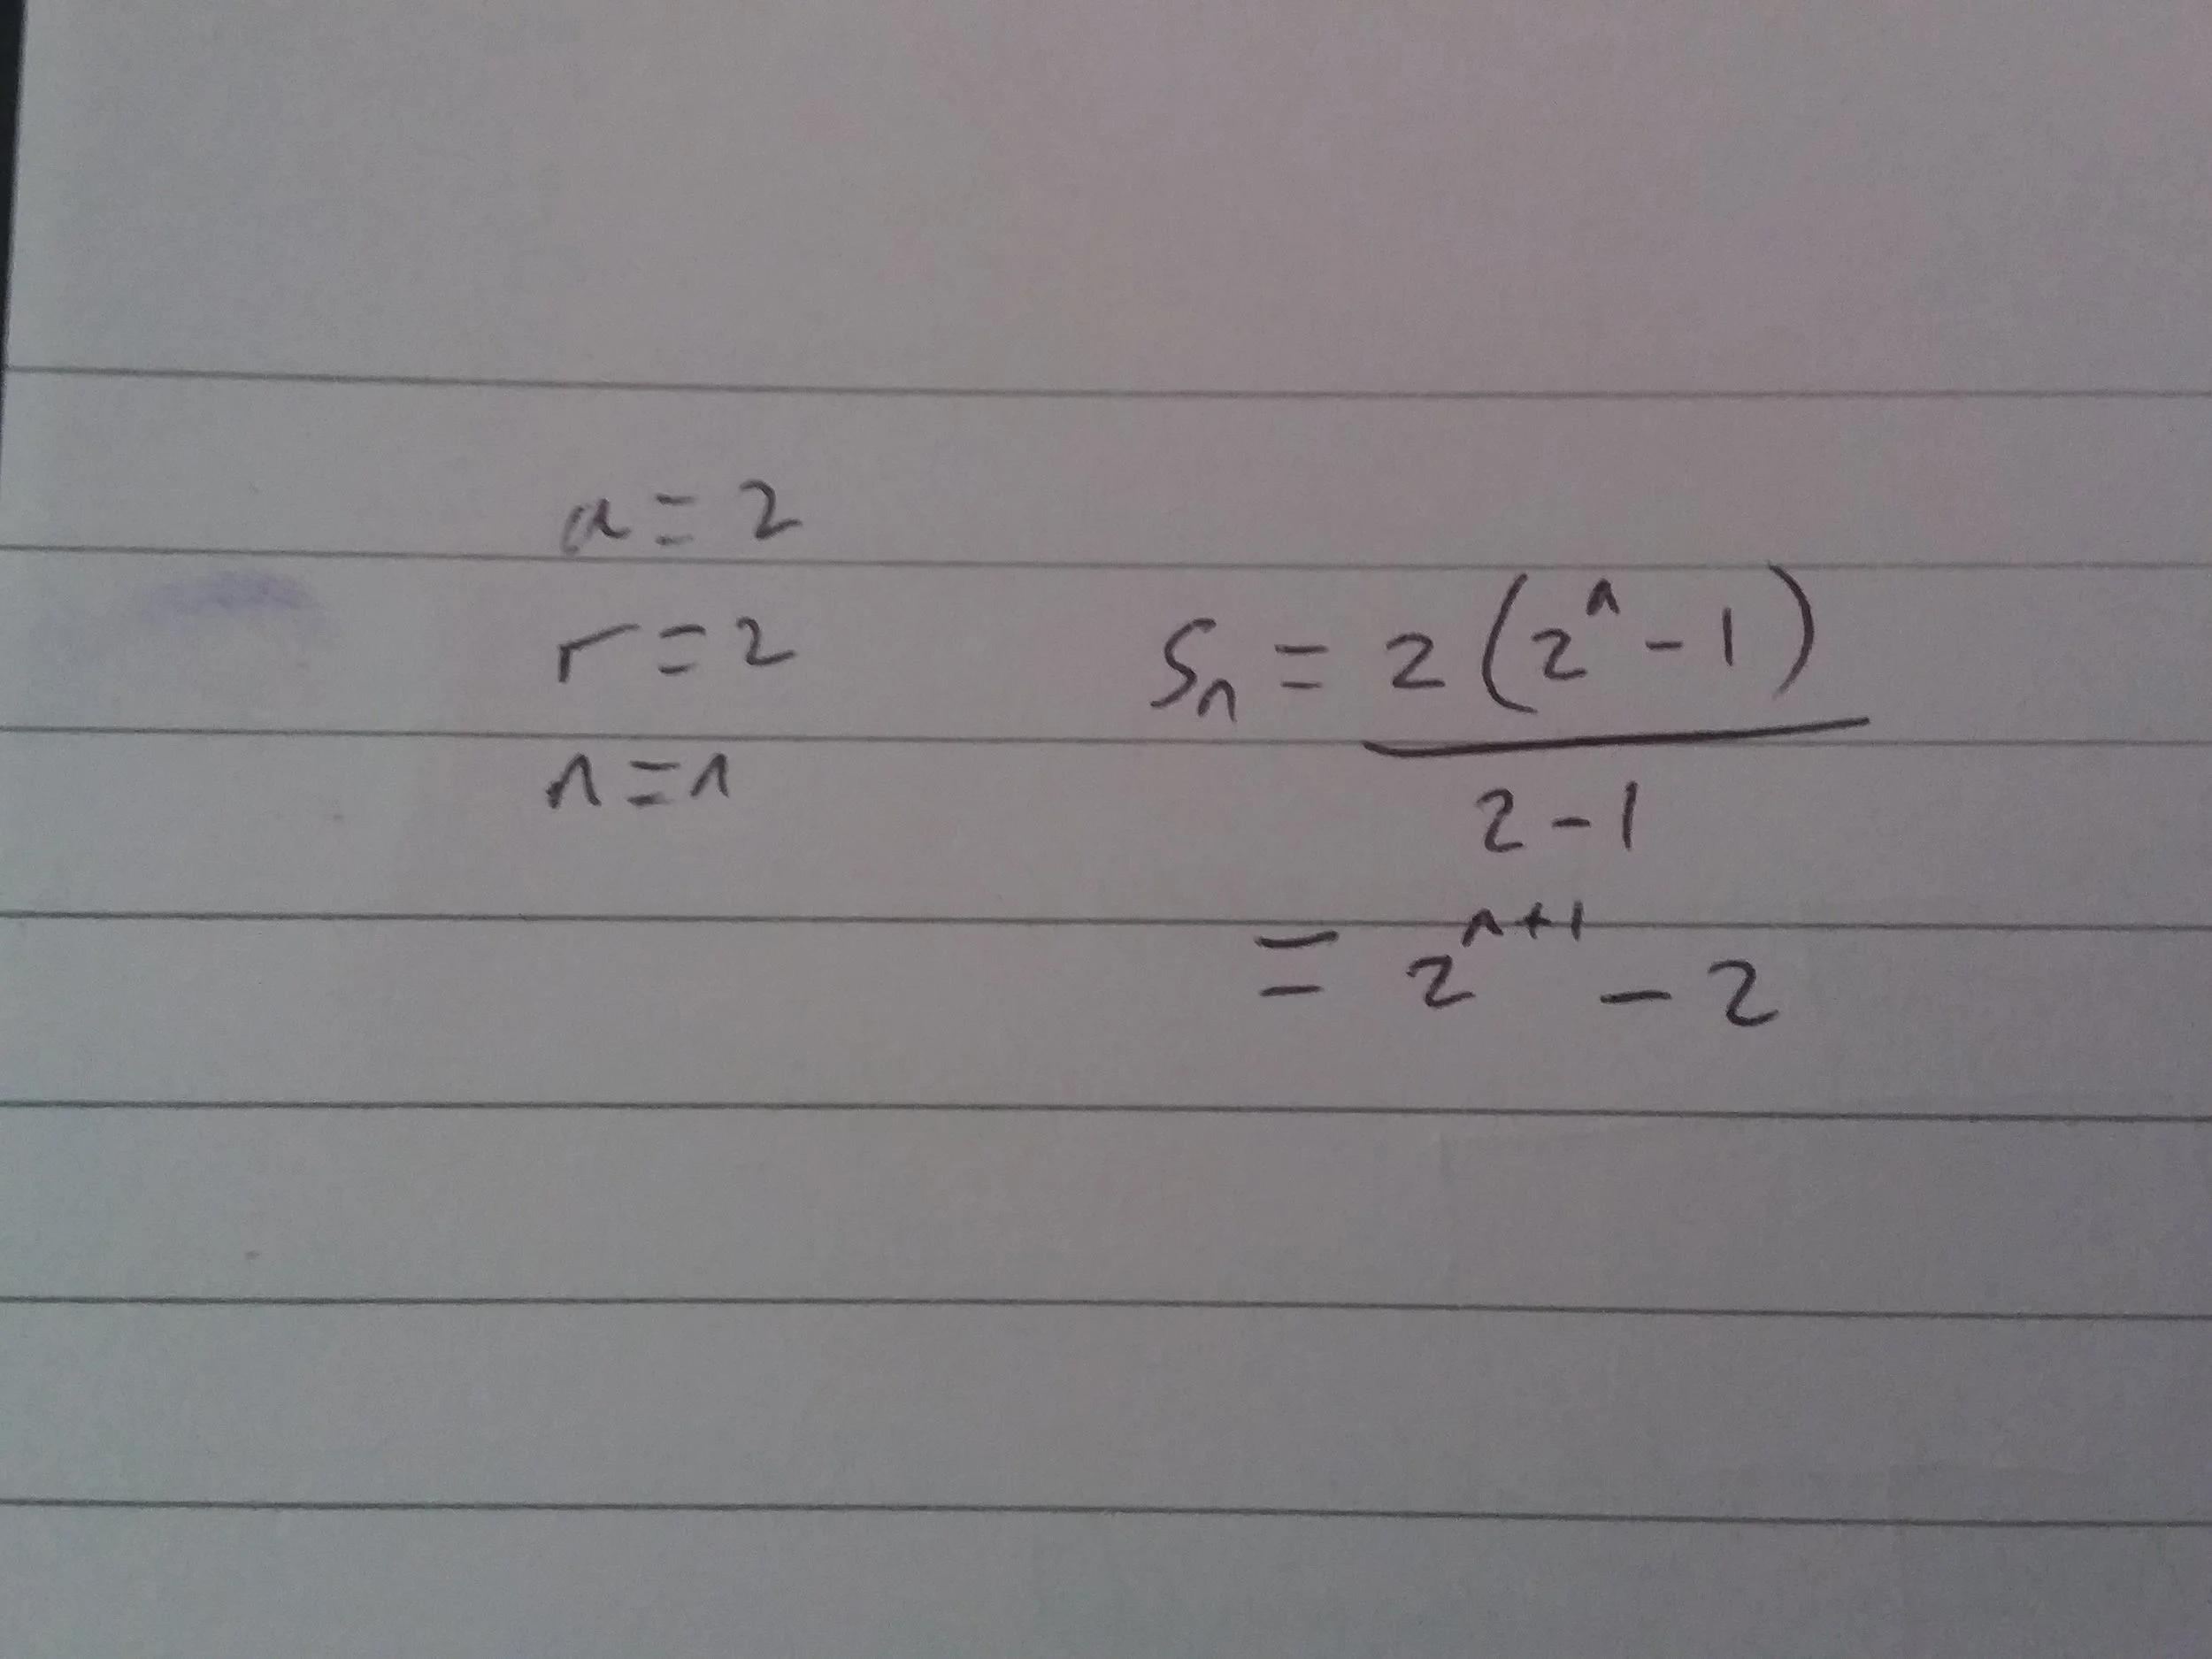 a = 2
r = 2
n = n
Sₙ = 2(2ⁿ - 1)
2 - 1
= 2ⁿ⁺¹ - 2